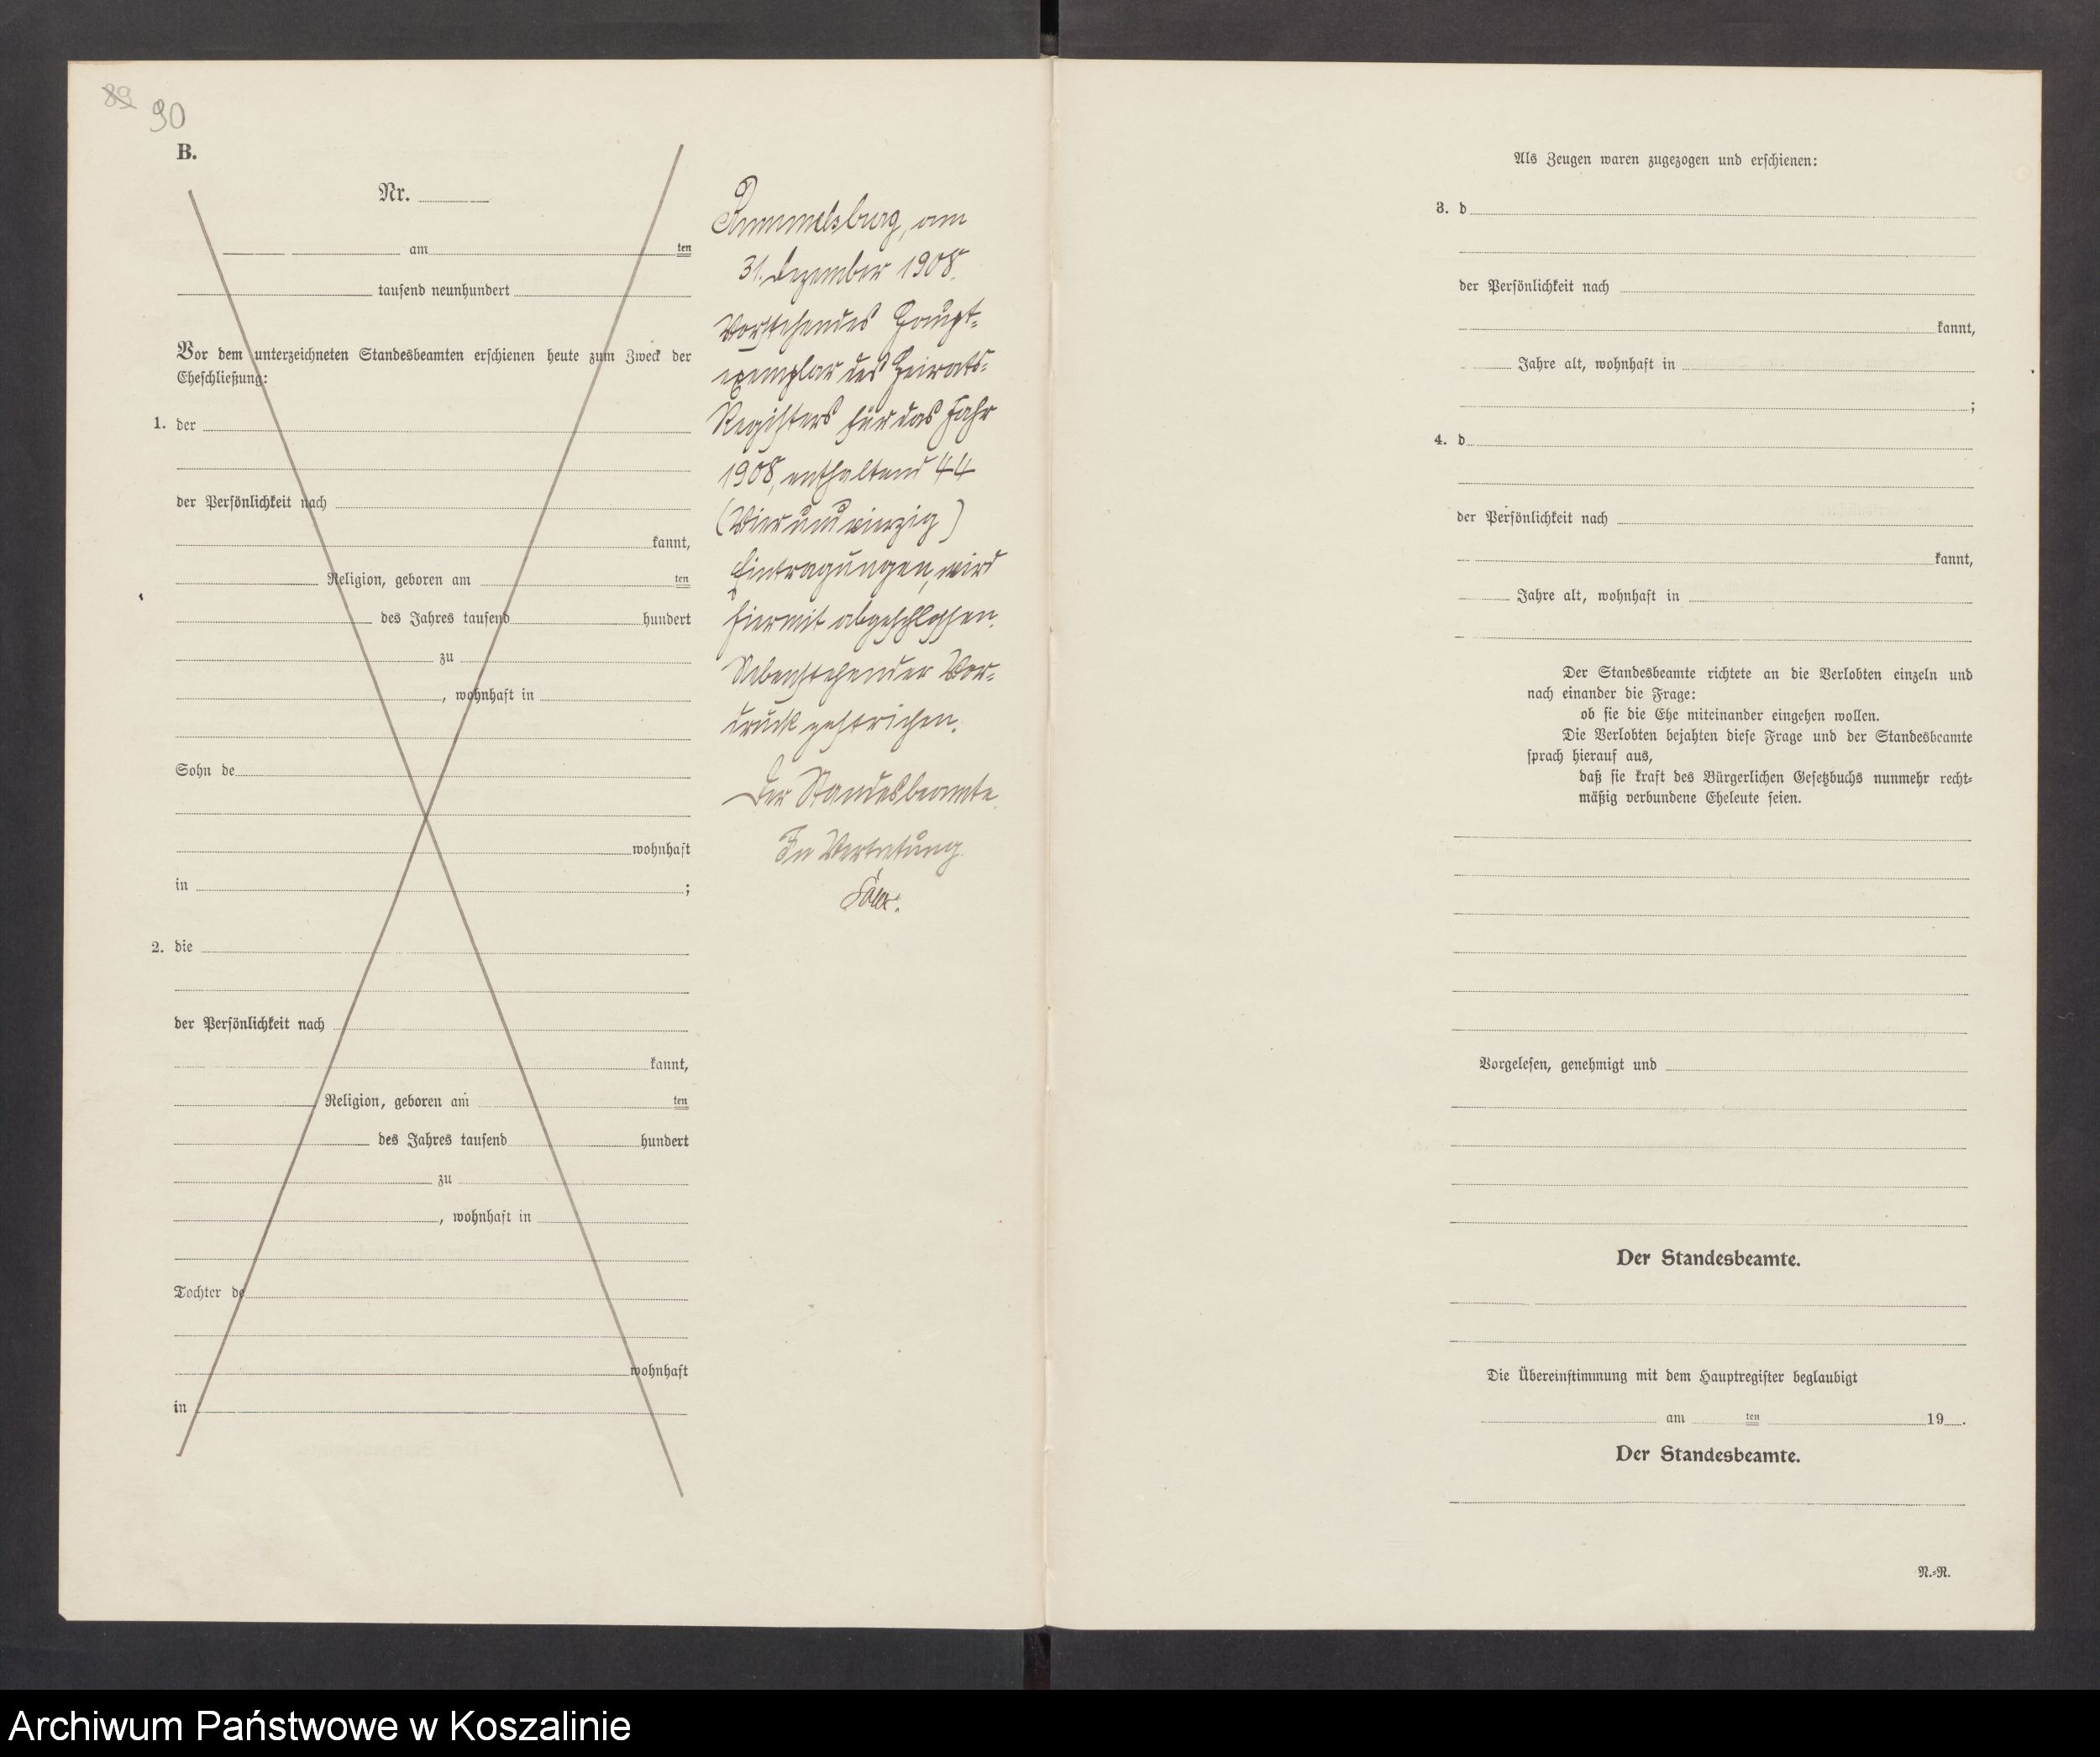 89 90
B.
Nr.
am ten
tausend neunhundert
Vor dem unterzeichneten Standesbeamten erschienen heute zum Zweck der
Eheschließung:
1. der
der Persönlichkeit nach
kannt,
Religion, geboren am ten
des Jahres tausend hundert
zu
, wohnhaft in
Sohn de
wohnhaft
in ;
2. die
der Persönlichkeit nach
kannt,
Religion, geboren am ten
des Jahres tausend hundert
zu
, wohnhaft in
Tochter de
wohnhaft
in
Rummelsburg, am
31. Dezember 1908.
Vorstehendes Haupt-
exemplar des Heirats-
Registers für das Jahr
1908, enthaltend 44
(Vierundvierzig)
Eintragungen, wird
hiermit abgeschlossen.
Nebenstehender Vor-
druck gestrichen.
Der Standesbeamte.
In Vertretung.
Als Zeugen waren zugezogen und erschienen:
3. d
der Persönlichkeit nach
kannt,
Jahre alt, wohnhaft in
;
4. d
der Persönlichkeit nach
kannt,
Jahre alt, wohnhaft in
Der Standesbeamte richtete an die Verlobten einzeln und
nach einander die Frage:
ob sie die Ehe miteinander eingehen wollen.
Die Verlobten bejahten diese Frage und der Standesbeamte
sprach hierauf aus,
daß sie kraft des Bürgerlichen Gesetzbuchs nunmehr recht-
mäßig verbundene Eheleute seien.
Vorgelesen, genehmigt und
Der Standesbeamte.
Die Übereinstimmung mit dem Hauptregister beglaubigt
am ten 19 .
Der Standesbeamte.
N.-R.
Archiwum Państwowe w Koszalinie